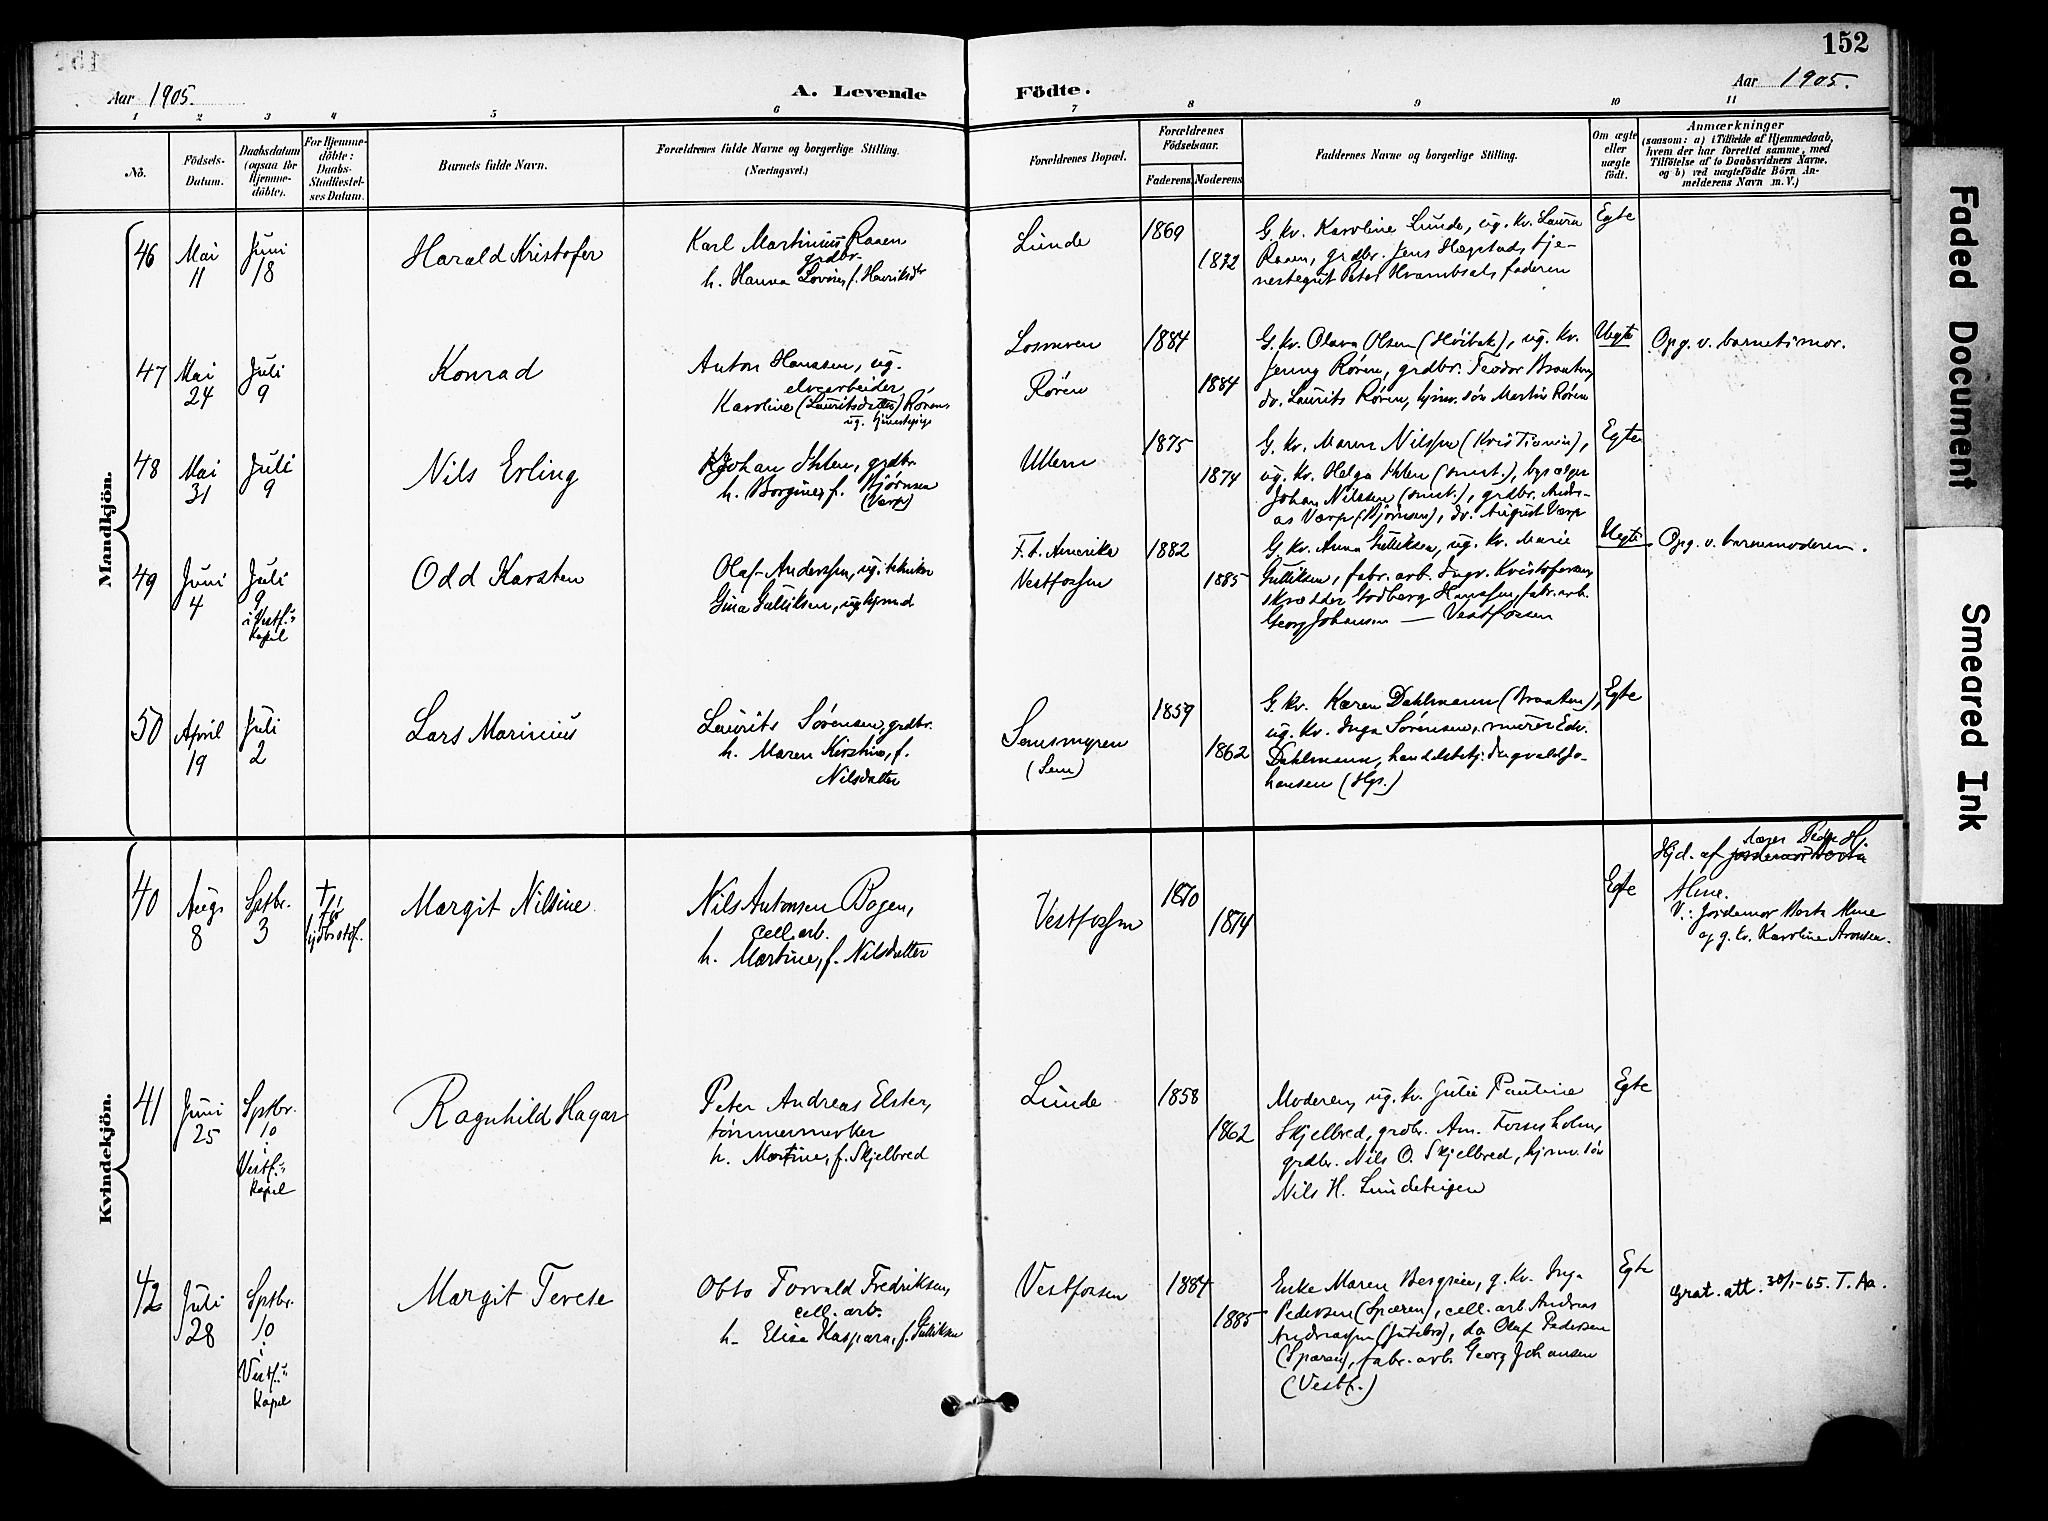 152
Aar 1905.
A. Levende
Födte.
Aar 1905.
1 2 3 4 5 6 7 8 9 10 11
No.
Födsels-
Datum.
Daabsdatum
(ogsaa för
Hjemme-
döbte).
For Hjemme-
döbte:
Daabs-
Stadfæstel-
ses Datum.
Barnets fulde Navn.
Forældrenes fulde Navne og borgerlige Stilling.
(Næringsvei.)
Forældrenes Bopæl.
Forældrenes
Födselsaar.
Faderens. Moderens.
Faddernes Navne og borgerlige Stilling.
Om ægte
eller
uægte
födt.
Anmærkninger
(saasom: a) i Tilfælde af Hjemmedaab,
hvem der har forrettet samme, med
Tilföielse af to Daabsvidners Navne.
og b) ved uægtefödte Börn An-
melderens Navn m. V.)
Mandkjön.
46
Mai
11
Juni
18
Harald Kristofer
Karl Martinius Raaen
grdbr.
h. Hanna Lovise, f. Henriksdr
Lunde
1869
1872
G. kv. Karoline Lunde, ug. kv. Laura
Raaen, grdbr. Jens Hægstad, tje-
nestegut Peter faderen
Egte
47
Mai
24
Juli
9
Konrad
Anton Hanssen, ug.
elvearbeider
Karoline (Lauritsdatter) Røren,
ug.
Losmoen
Røren
1884
1884
G. kv. Olava Olsen (Hoibak), ug. kv.
Jenny Røren, grdbr. Teodor Braaten,
do. Laurits Røren, hjmv. søn Martin Røren
Uegte
Opg. v. barnets mor.
48
Mai
31
Juli
9
Nils Erling
Johan Ihlen, grdbr
h. Borgine, f. Bjørnsen
(Værp)
Ullern
1875
1874
G. kv. Maren Nilssen (Kristiania),
ug. kv. Helga Ihlen (smst.),
Johan Nilssen (smst.), grdbr. Andre-
as Værp (Bjørnsen), do. August Værp
Egte
49
Juni
4
Juli
9
i Vestf.s
kapel
Odd Karsten
Olaf Anderssen, ug. tekniker
Gina Gulliksen, ug.
F. t. Amerika
Vestfossen
1882
1885
G. kv. Anna Gulliksen, ug. kv. Marie
Gulliksen, fabr. arb. Ingv. Kristofersen,
skrædder Godberg Hanssen, fabr. arb.
Georg Johansen — Vestfossen
Uegte
Opg. v. barnemoderen.
50
April
19
Juli
2
Lars Marinius
Laurits Sørensen, grdbr.
h. Maren Kirstine, f.
Nilsdatter
Semsmyren
(Sem)
1859
1862
G. kv. Karen Dahlmann (Braaten),
ug. kv. Inga Sørensen, murer Edv.
Dahlmann, handelsbetj. Ingvald Jo-
hansen (Hgs.)
Egte
Kvindekjön.
40
Aug.
8
Sptbr.
3
Margit Nilsine
Nils Antonsen Bogen,
cell. arb.
h. Martine, f. Nilsdatter
Vestfossen
1870
1874
Egte
Hjd. af
Alme.
V.: Jordemor Berta Alme
og g. kv. Karoline Aronsen.
41
Juni
25
Sptbr.
10
i
Vestf.s
kapel
Ragnhild Hagar
Peter Andreas Elster,
tømmermerker
h. Martine, f. Skjelbred
Lunde
1858
1862
Moderen, ug. kv. Julie Pauline
Skjelbred, grdbr. Am. Forsesholm,
grdbr. Nils O. Skjelbred, hjmv. søn
Nils H. Lundeteigen
Egte
42
Juli
28
Sptbr.
10
i
Vestf.s
Kapel
Margit Terese
Otto Torvald Fredriksen,
cell. arb.
h. Elise Kaspara, f. Gulliksen
Vestfossen
1884
1885
Enke Maren Bergseie, g. kv. Inga
Pedersen (Spæren), cell. arb. Andreas
Andreassen, do Olaf Pedersen
(Spæren), fabr. arb. Georg Johansen
(Vestf.)
Egte
Grat. att. 30/1-65. T. Aa.
Faded Document
Smeared Ink